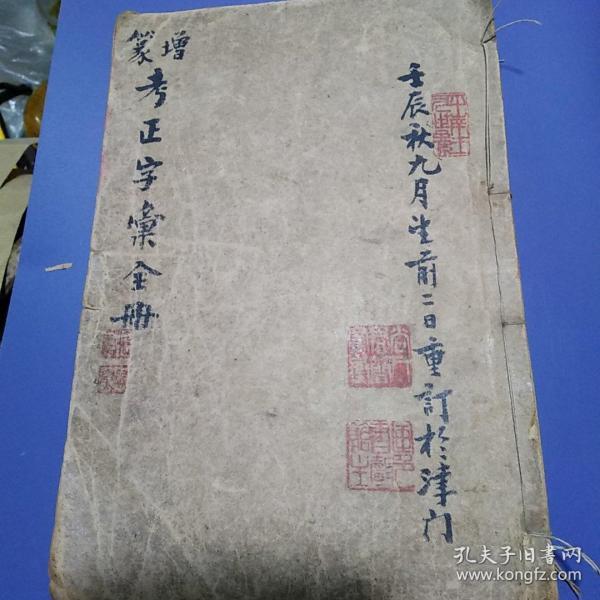 壬辰秋九月望前二日重訂於津门
增篆考正字彙全册
孔夫子旧书网
www.kongfz.com